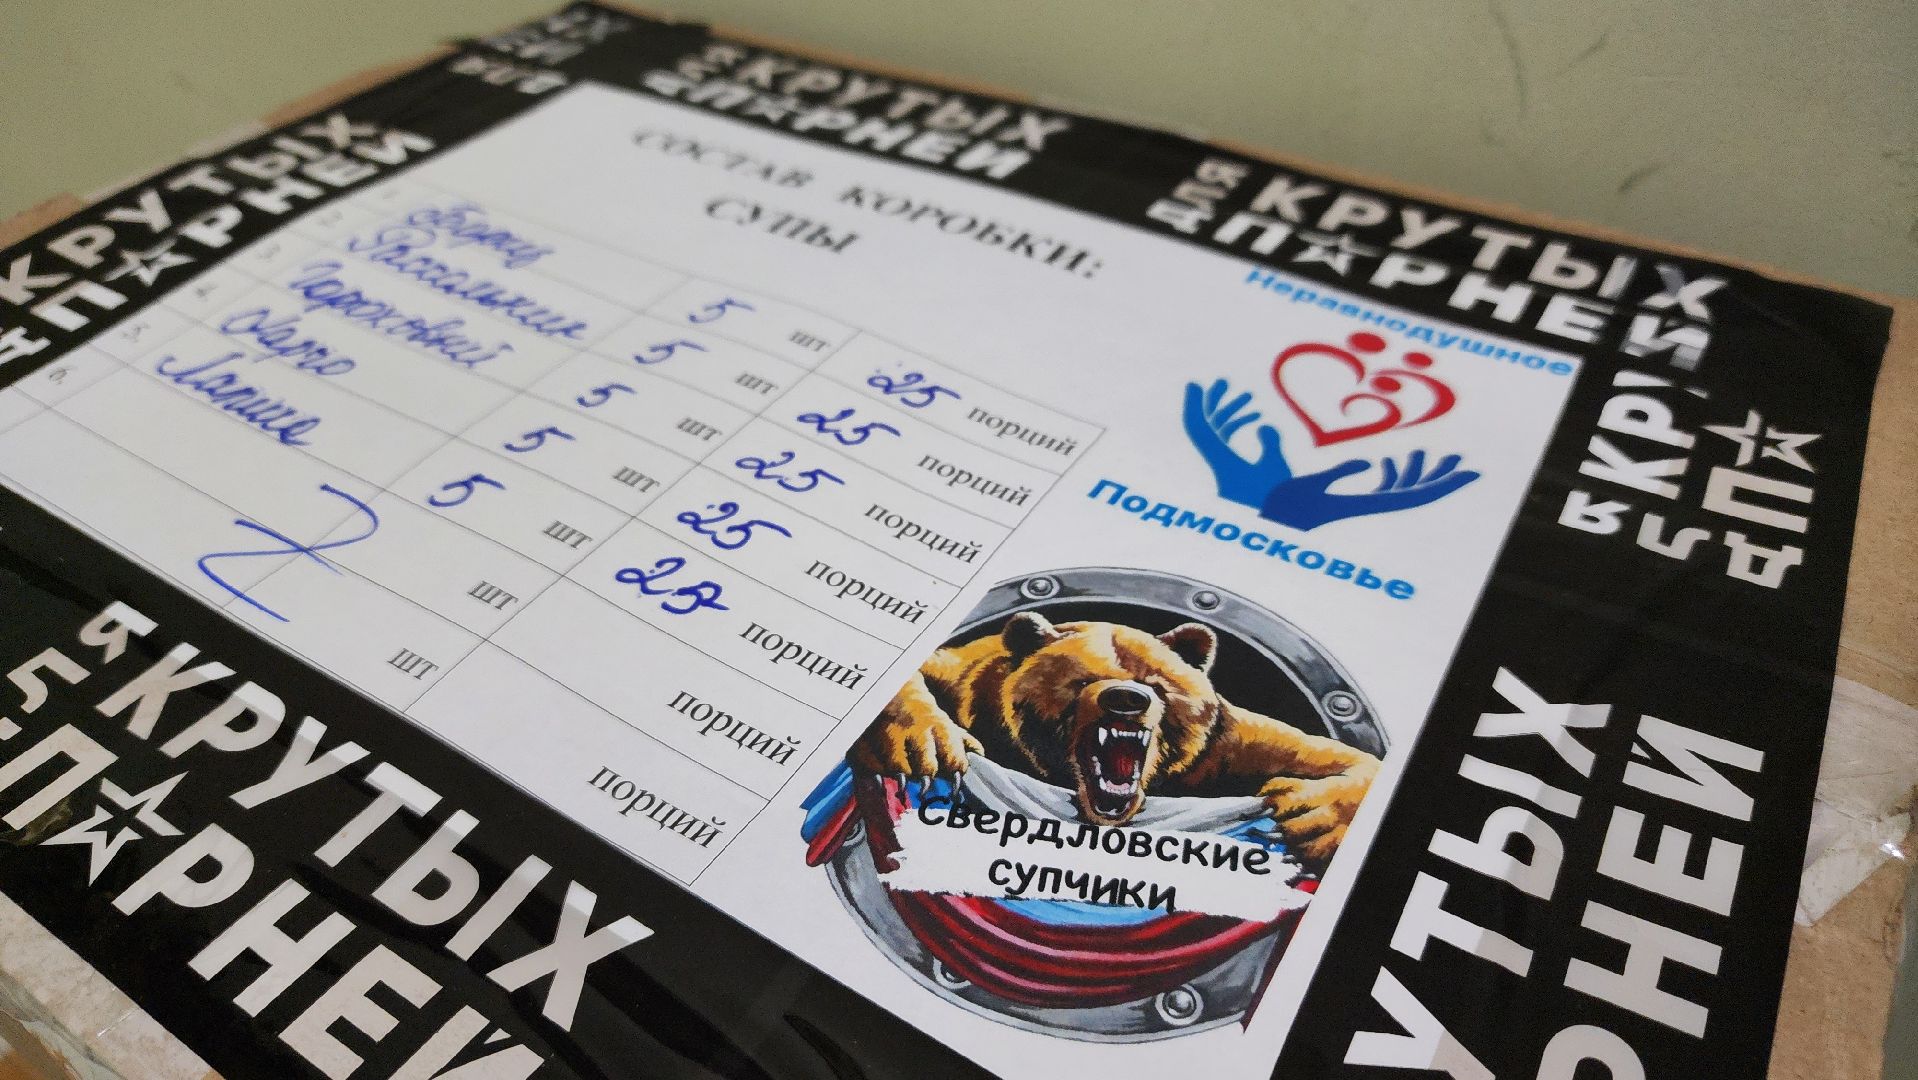 СОСТАВ КОРОБКИ:
СУПЫ
1. Борщ 5 шт 25 порций
2. Рассольник 5 шт 25 порций
3. Гороховый 5 шт 25 порций
4. Харчо 5 шт 25 порций
5. Лапша 5 шт 25 порций
6. шт порций
шт порций
Неравнодушное
Подмосковье
Свердловские
супчики
КРУТЫХ
ПАРНЕЙ
КРУТЫХ
ПАРНЕЙ
КРУТЫХ
ПАРНЕЙ
КРУТЫХ
ПАРНЕЙ